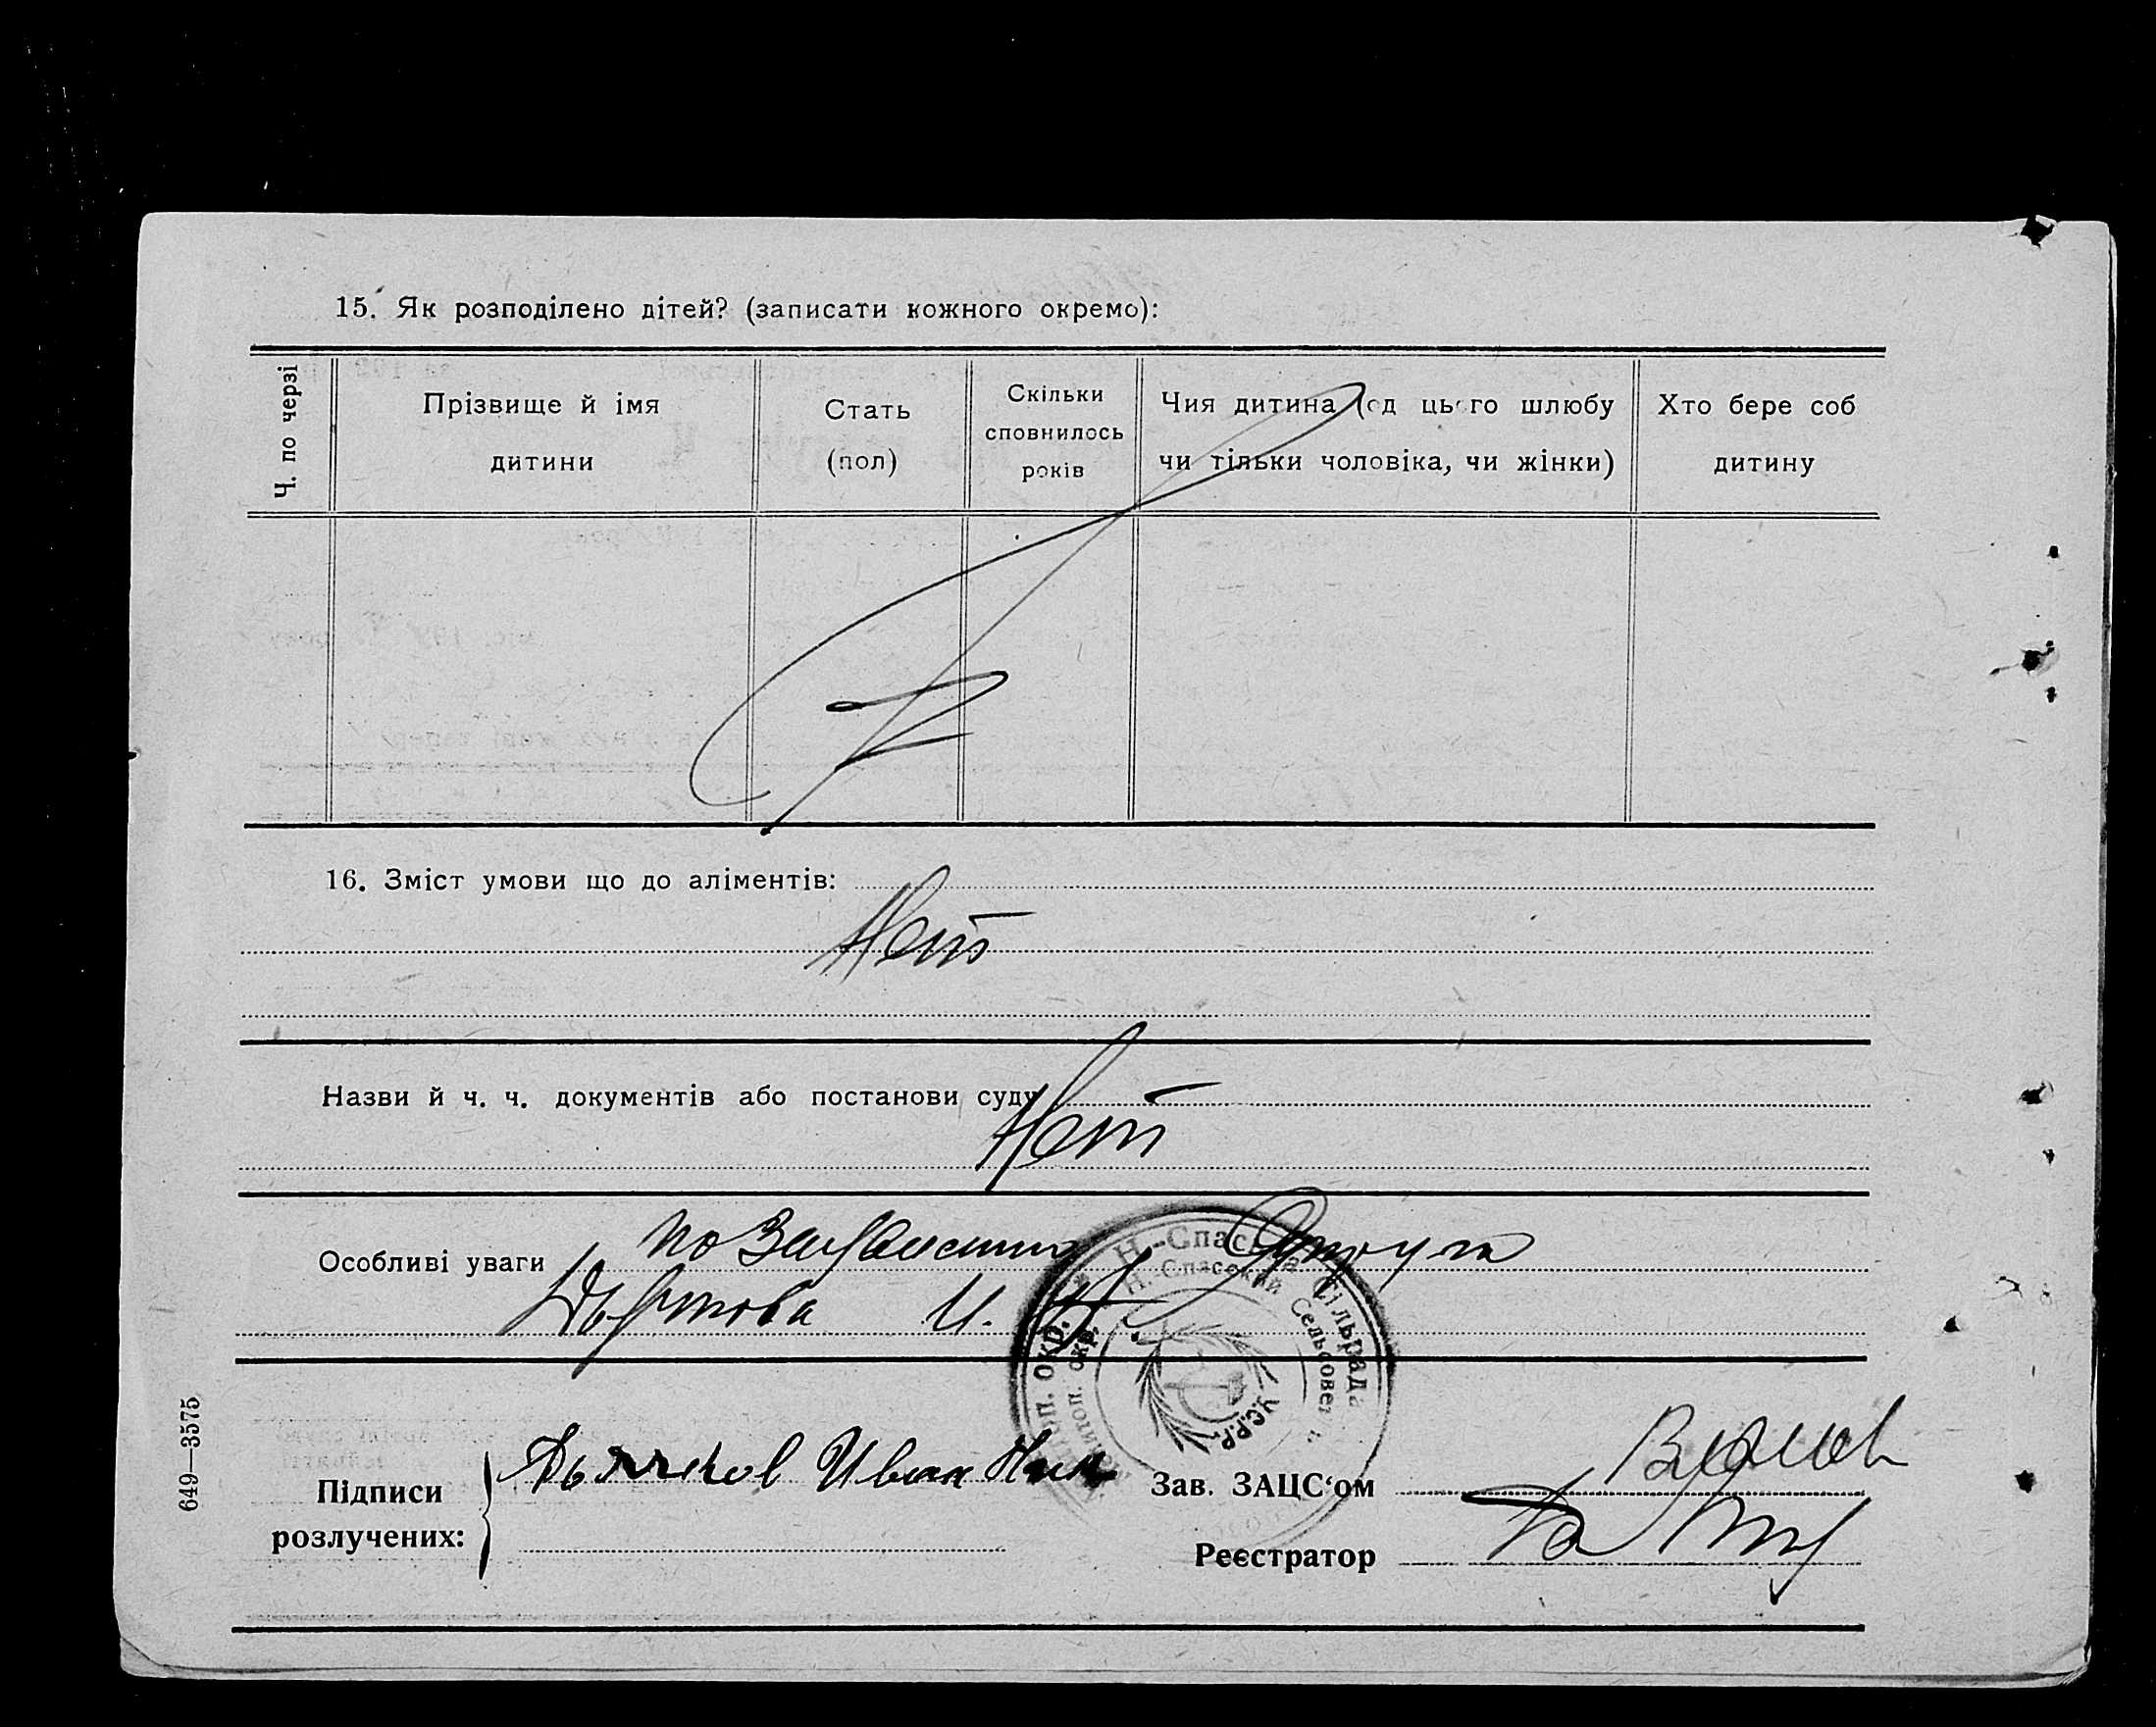 15. Як розподілено дітей? (записати кожного окремо):
Ч. по черзі
Прізвище й імя
дитини
Стать
(пол)
Скільки
сповнилось
років
Чия дитина (од цього шлюбу
чи тільки чоловіка, чи жінки)
Хто бере соб
дитину
16. Зміст умови що до аліментів:
Нет
Назви й ч. ч. документів або постанови суду
Нет
Особливі уваги
по
И.
Н.-Спаська Сільрада
Н.-Спасский Сельсовет
окр.
окр.
У.С.Р.Р.
Підписи
розлучених:
Дьячков Иван Ник
Зав. ЗАЦС‘ом
Реєстратор
649—3575